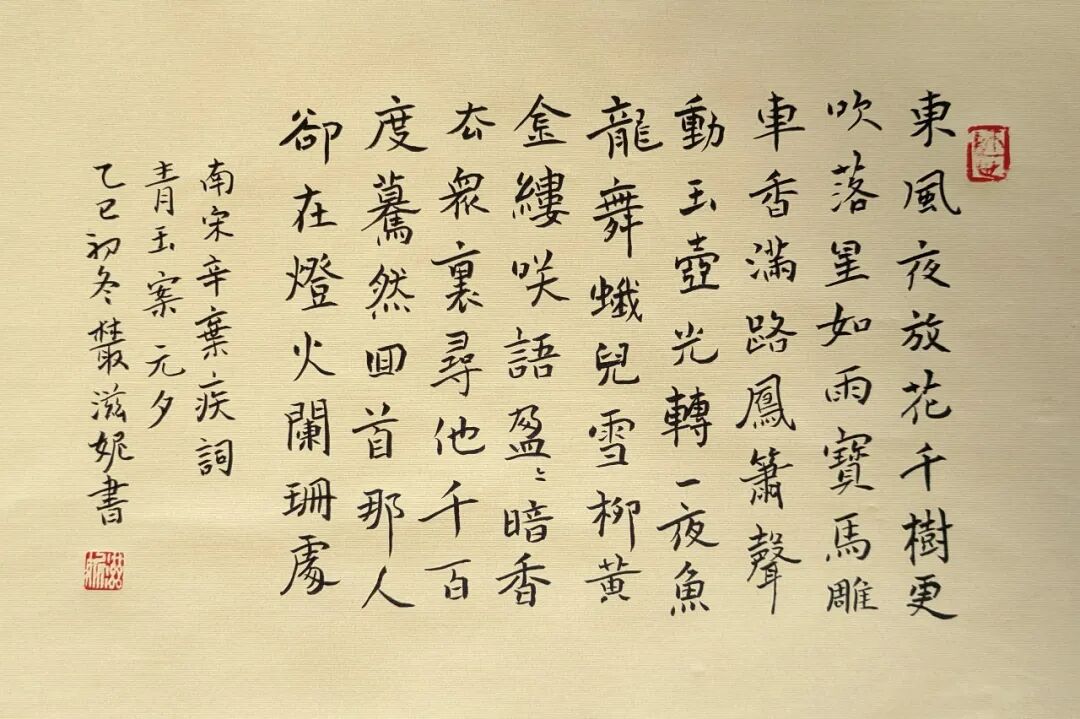 東風夜放花千樹更
吹落星如雨寶馬雕
車香滿路鳳簫聲
動玉壺光轉一夜魚
龍舞蛾兒雪柳黃
金縷咲語盈〻暗香
去眾裏尋他千百
度驀然回首那人
卻在燈火闌珊處
南宋辛棄疾詞
青玉案元夕
乙巳初冬叢滋妮書